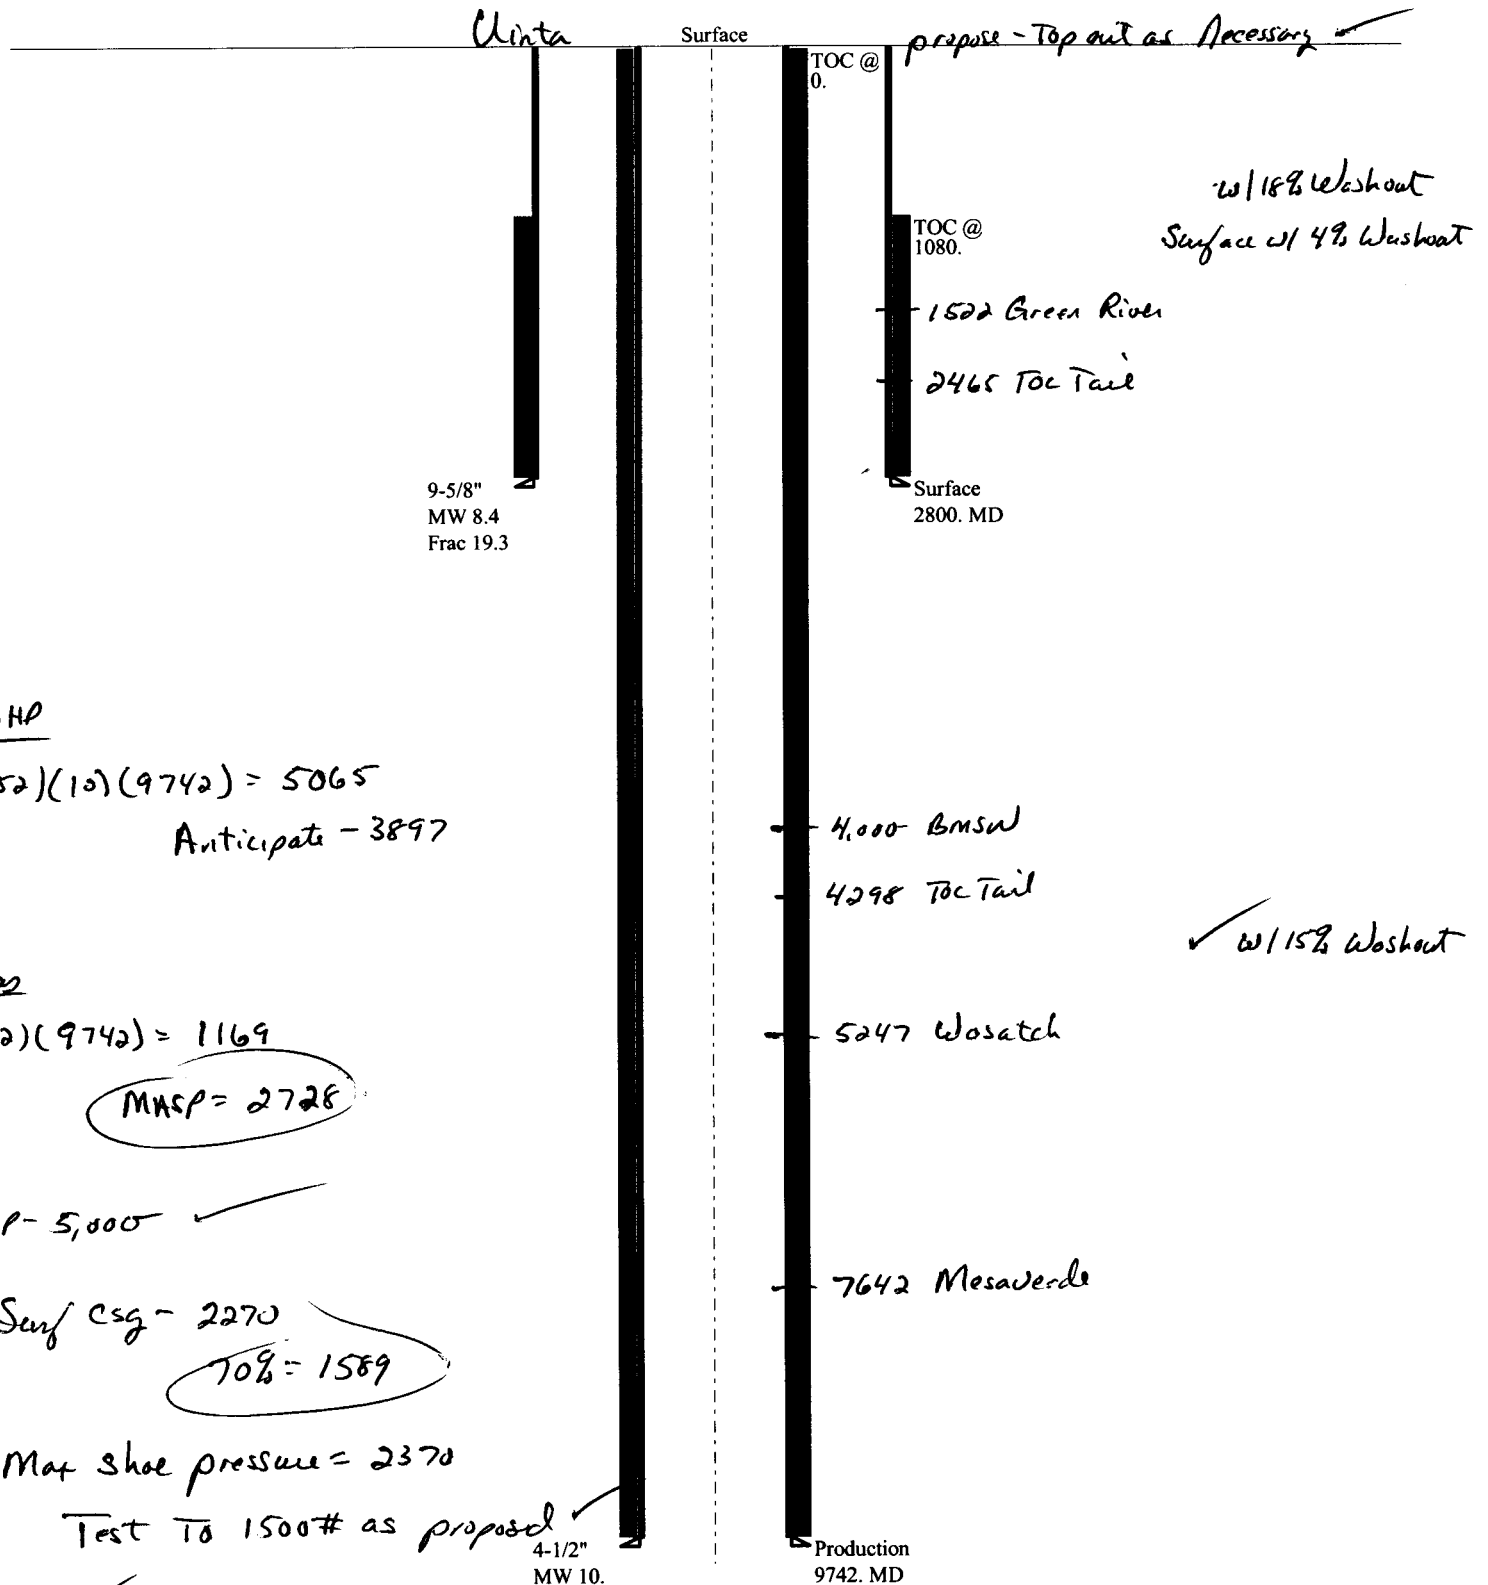 Uinta
Surface
propose - Top out as Necessary
TOC @
0.
w/ 18% Washout
TOC @
1080.
Surface w/ 4% Washout
1522 Green River
2465 TOC Tail
9-5/8"
MW 8.4
Frac 19.3
Surface
2800. MD
HP
52)(10)(9742) = 5065
Anticipate - 3897
4,000 BMSW
4298 TOC Tail
w/ 15% Washout
2)(9742) = 1169
5247 Wasatch
MASP = 2728
P- 5,000
7642 Mesaverde
Surf csg - 2270
70% = 1589
Max shoe pressure = 2370
Test To 1500# as proposed
4-1/2"
MW 10.
Production
9742. MD